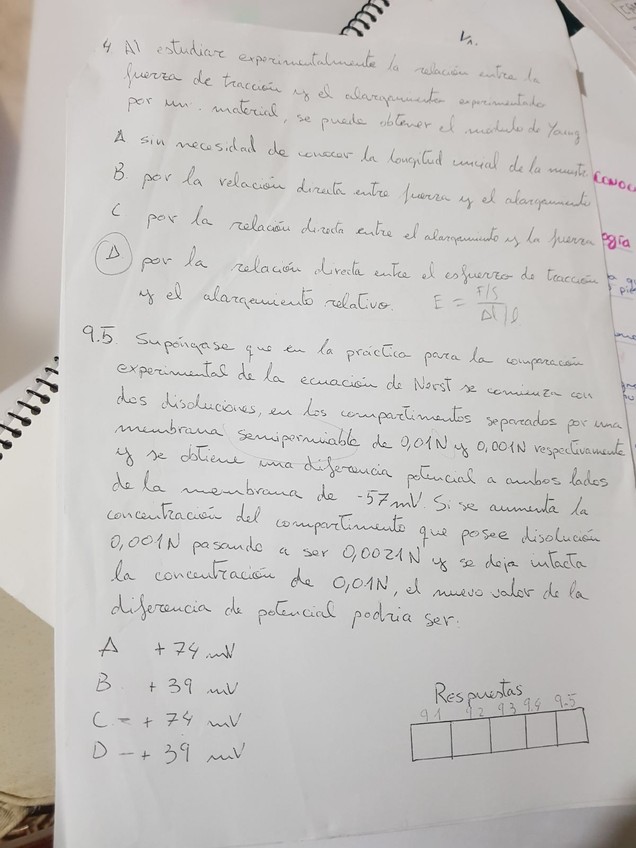 4 Al estudiar experimentalmente la relación entre la
fuerza de tracción y el alargamiento experimentado
por un material, se puede obtener el modulo de Young
A sin necesidad de conocer la longitud inicial de la muestra
B. por la relación directa entre fuerza y el alargamiento
C por la relación directa entre el alargamiento y la fuerza
D por la relación directa entre el esfuerzo de tracción
y el alargamiento relativo. E = F/S / Δl/l
9.5. Supóngase que en la práctica para la comparación
experimental de la ecuación de Nerst se comienza con
dos disoluciones, en los compartimentos separados por una
membrana semipermiable de 0,01N y 0,001N respectivamente
y se obtiene una diferencia potencial a ambos lados
de la membrana de -57mV. Si se aumenta la
concentración del compartimento que posee disolución
0,001N pasando a ser 0,0021N y se deja intacta
la concentración de 0,01N, el nuevo valor de la
diferencia de potencial podria ser:
A + 74 mV
B + 39 mV
C = + 74 mV
D - + 39 mV
Respuestas
9.1 9.2 9.3 9.4 9.5
CONOC
ogía